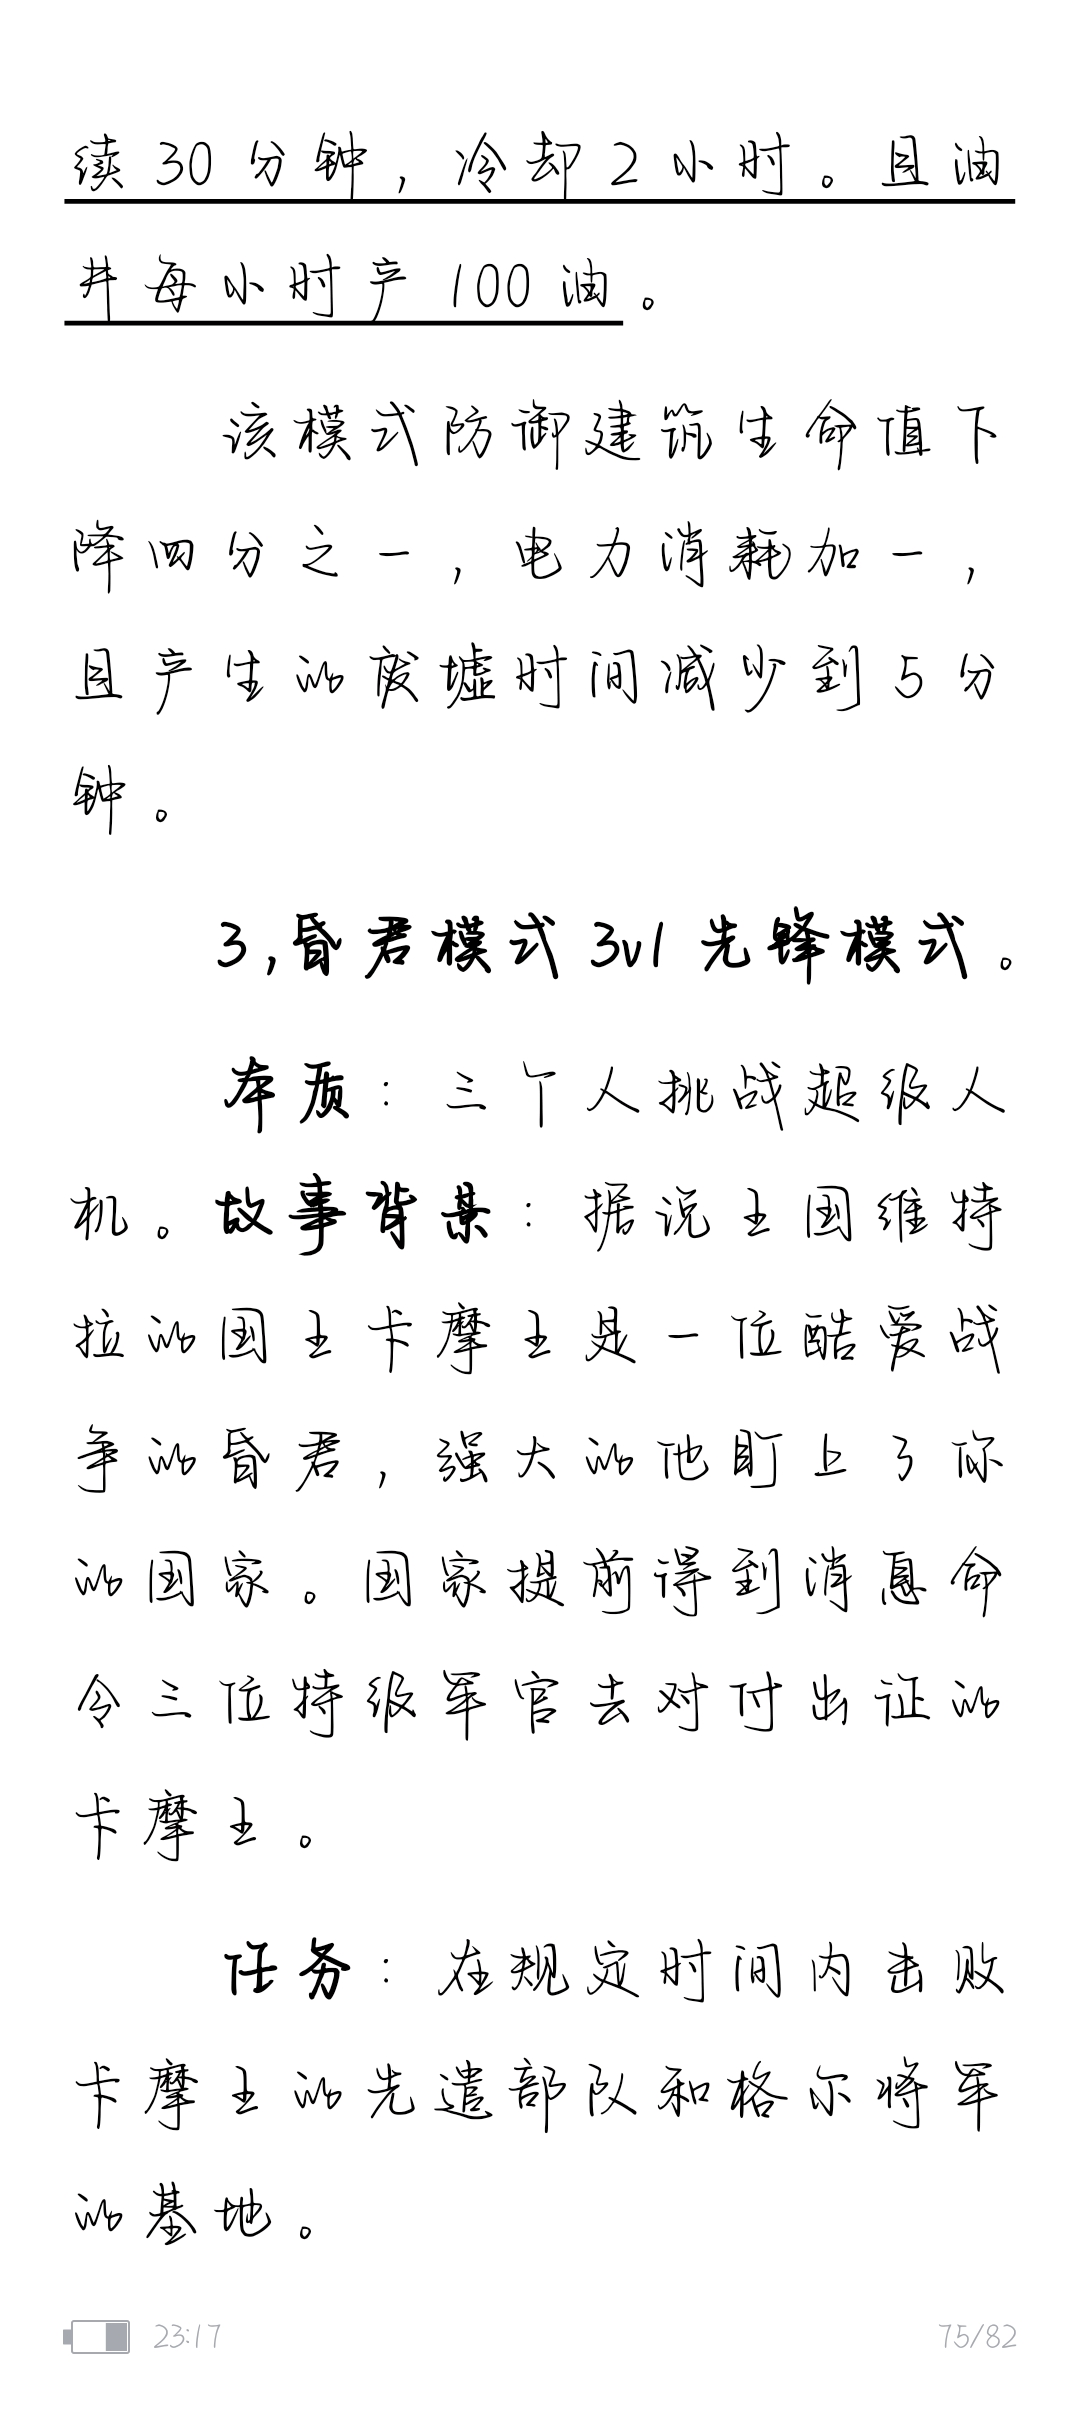 续30分钟，冷却2小时。且油
井每小时产100油。
该模式防御建筑生命值下
降四分之一，电力消耗加一，
且产生的废墟时间减少到5分
钟。
3,昏君模式3v1先锋模式。
本质：三个人挑战超级人
机。故事背景：据说王国维特
拉的国王卡摩王是一位酷爱战
争的昏君，强大的他盯上了你
的国家。国家提前得到消息命
令三位特级军官去对付出证的
卡摩王。
任务：在规定时间内击败
卡摩王的先遣部队和格尔将军
的基地。
23:17
75/82